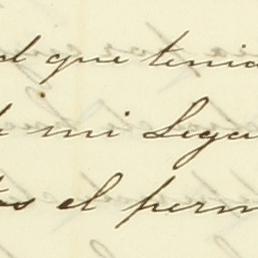 d que tenia
mi Lega
el perm